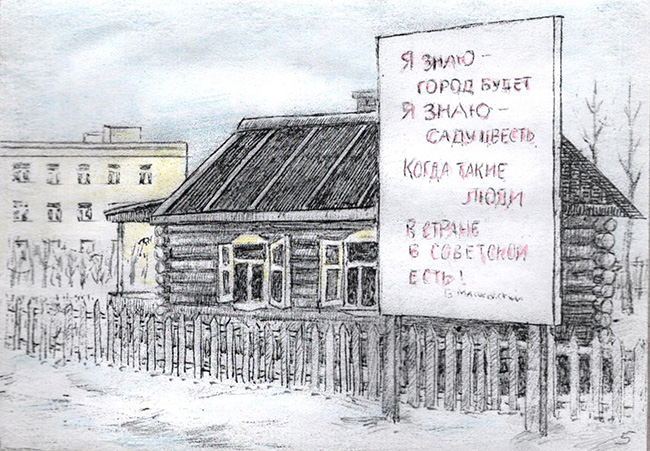 Я ЗНАЮ –
ГОРОД БУДЕТ
Я ЗНАЮ –
САДУ ЦВЕСТЬ
КОГДА ТАКИЕ
ЛЮДИ
В СТРАНЕ
В СОВЕТСКОЙ
ЕСТЬ!
В. Маяковский
5